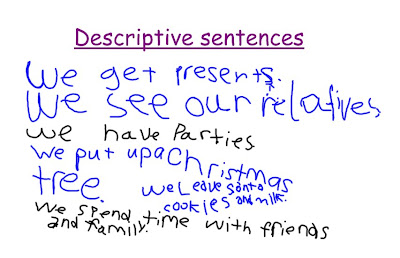 Descriptive sentences
We get presents.
We see our relatives
we have Parties
we put up a Christmas
tree.
we Leave santa
cookies and milk.
we spend time with friends
and family.